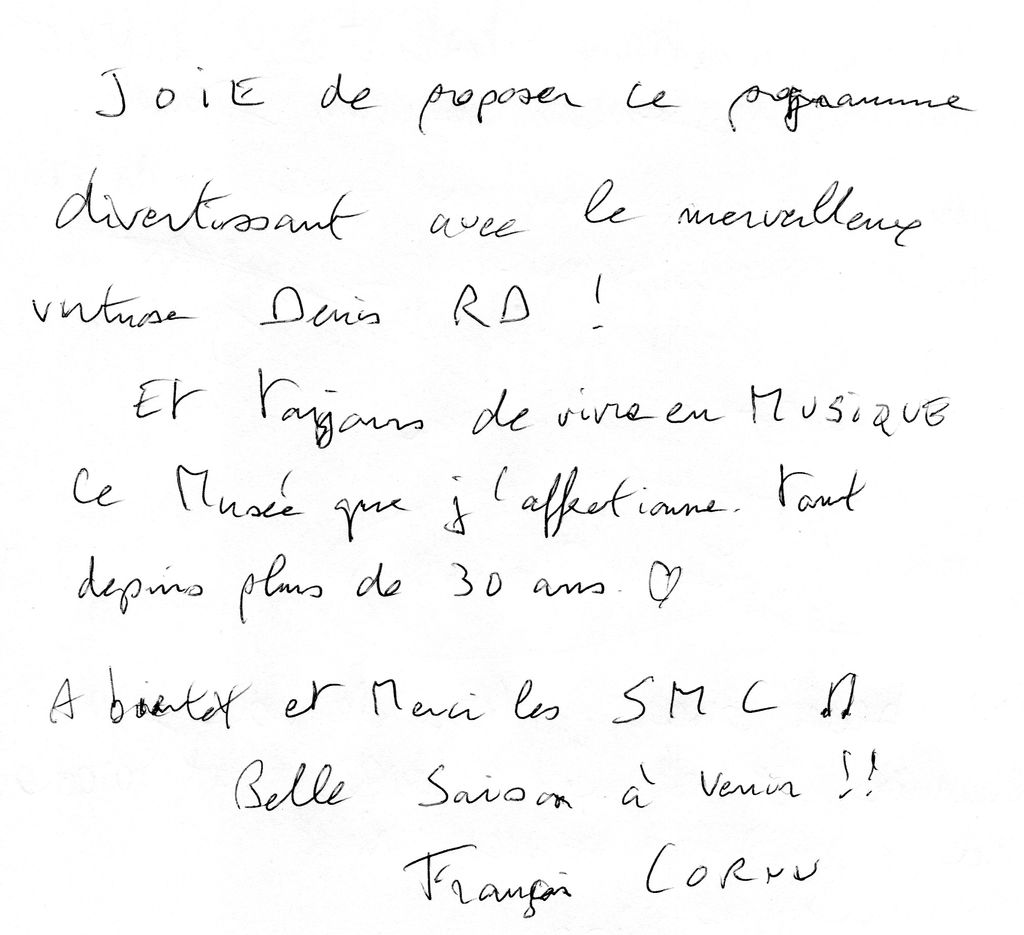 JOIE de proposer ce programme
divertissant avec le merveilleux
virtuose Denis RD !
Et toujours de vivre en MUSIQUE
Ce Musée que j'affectionne. tant
depuis plus de 30 ans. ♡
A bientôt et Merci les SMC ♫
Belle Saison à venir !!
François CORNU